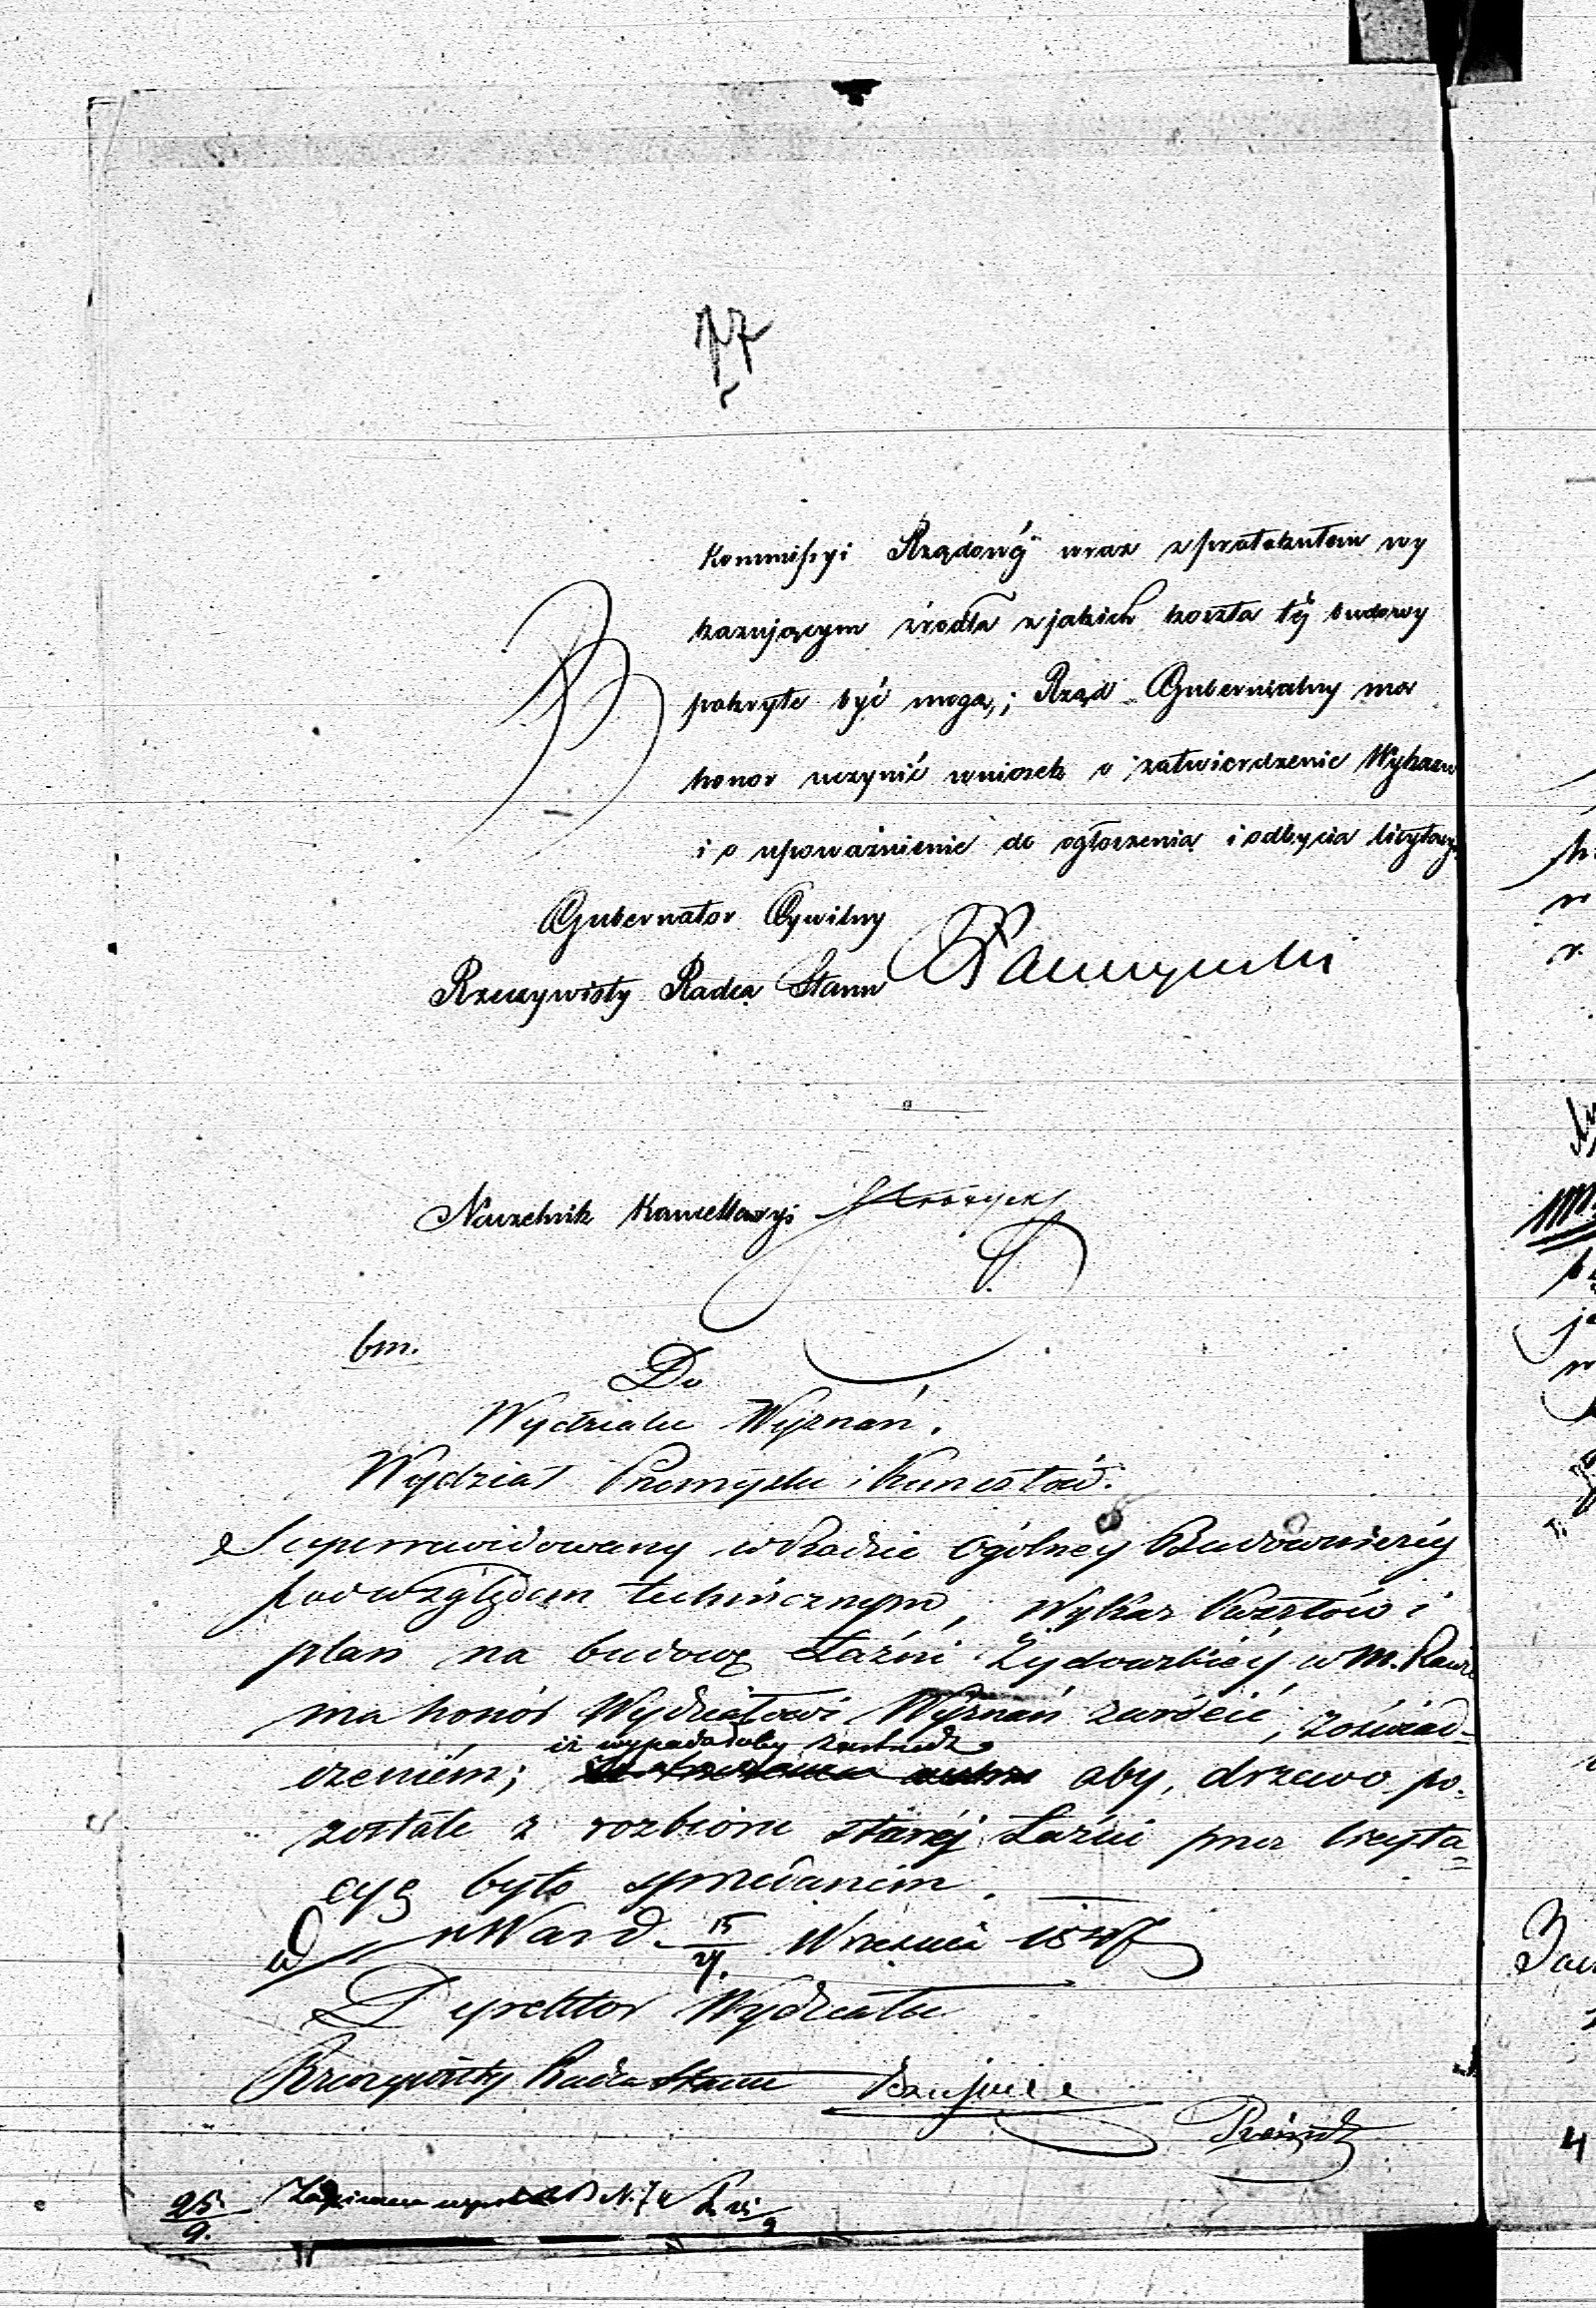 17
Kommissyi Rządowéy wraz z protokułem wy
kazującym źrodła z jakich koszta téj budowy
pokryte być mogą; Rząd Gubernialny ma
honor uczynić wniosek o zatwierdzenie Wykazu
i o upoważnienie do ogłoszenia i odbycia licytacyi
Gubernator Cywilny
Rzeczywisty Radca Stanu
Naczelnik Kancellaryi
bm.
Do
Wydziału Wyznań.
Wydział Przemysłu i Kunsztów.
Superrewidowany w Radzie Ogólnéy Budowniczéy
pod względem technicznym, Wykaz Kosztów i
plan na budowę Łaźni Żydowskiéy w M. Rawie
ma honor Wydziałowi Wyznań zwrócić, z oświad-
iż wypadałoby zastrzedz
czeniem; aby, drzewo po-
zostałe z rozbioru staréj Łaźni przez licyta=
cyą było sprzedanem.
w Warsz. d. 15/27. Września 1847
Dyrektor Wydziału
Rzeczywisty Radca Stanu
25/9.